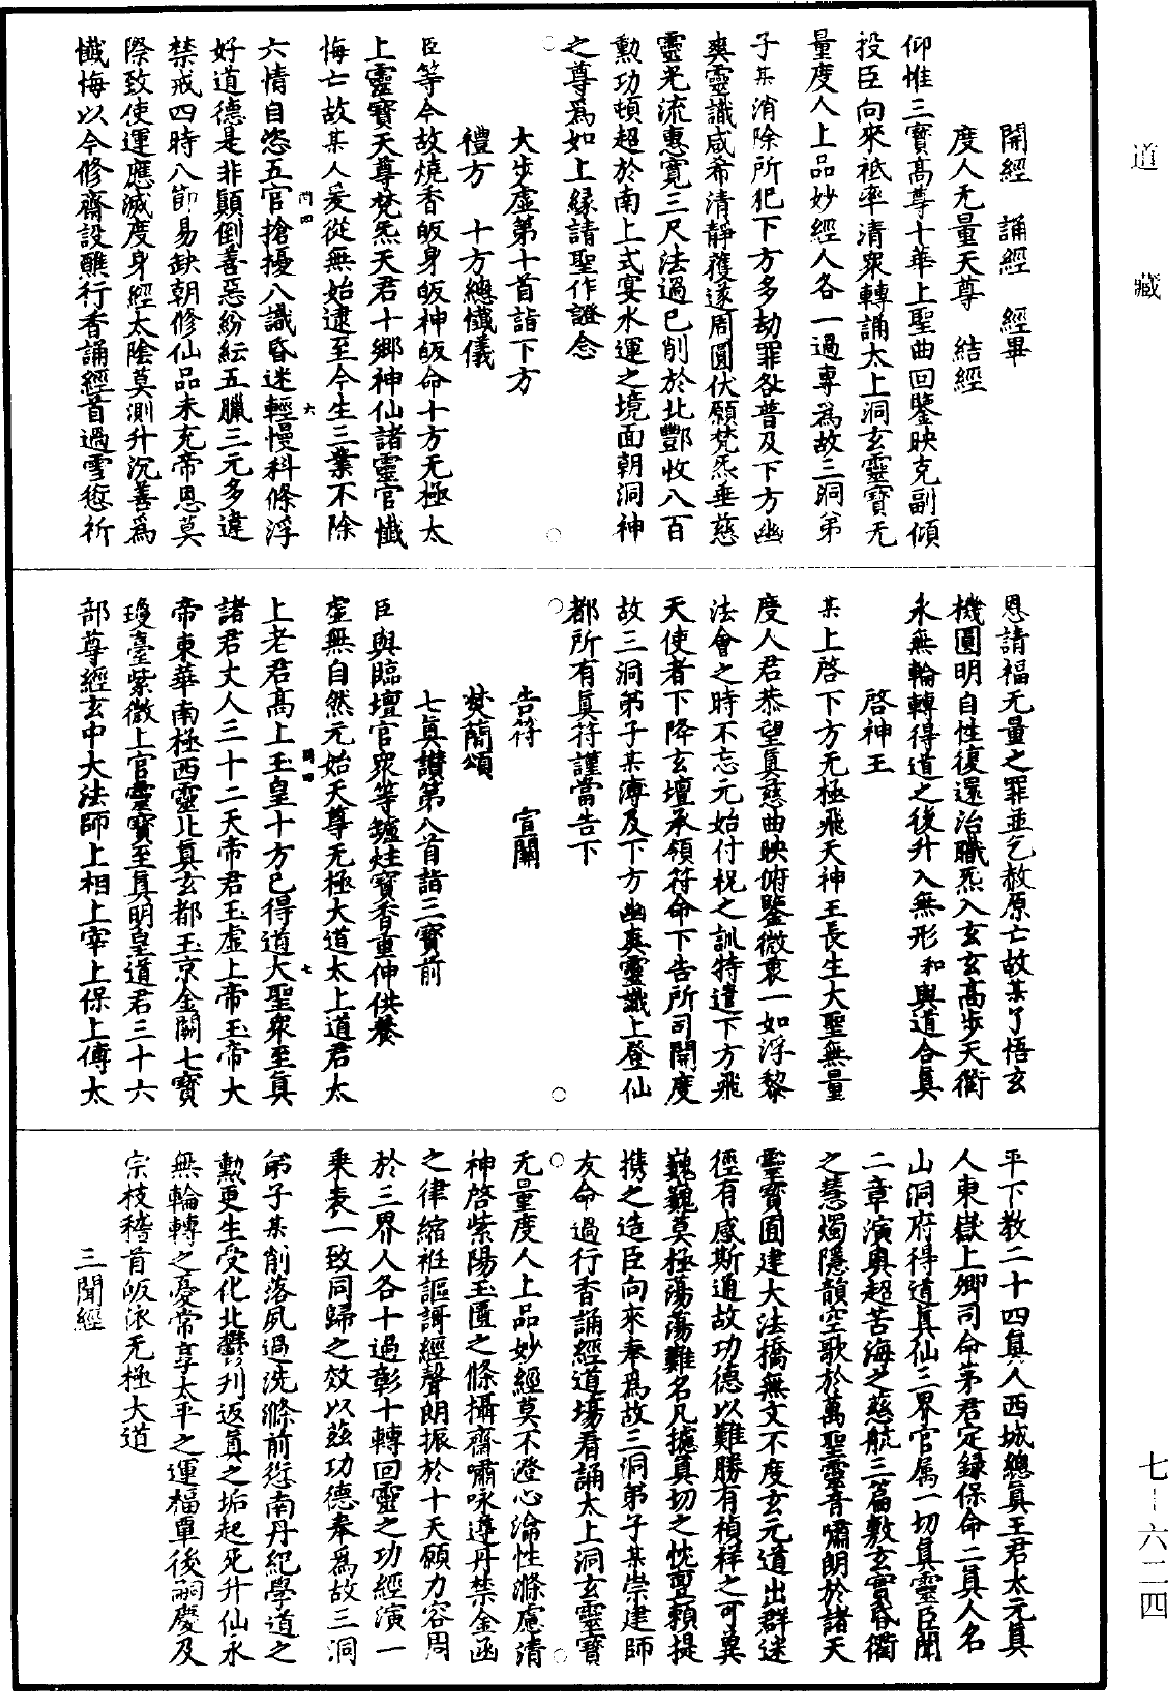 道藏
開經　誦經　經畢
度人无量天尊　結經
仰惟三寶高尊十華上聖曲回鑒映克副傾
投臣向來祗率清衆轉誦太上洞玄靈寶无
量度人上品妙經人各一過專爲故三洞弟
子某消除所犯下方多劫罪咎普及下方幽
爽靈識咸希清靜獲遂周圓伏願梵炁垂慈
靈光流惠寬三尺法過已削於北酆收八百
勳功頓超於南上式宴水運之境面朝洞神
之尊爲如上緣請聖作證念
大步虛第十首詣下方
禮方　十方總懺儀
臣等今故燒香皈身皈神皈命十方无極太
上靈寶天尊梵炁天君十鄉神仙諸靈官懺
悔亡故某人爰從無始逮至今生三業不除
六情自恣五官搶擾八識昏迷輕慢科條浮
好道德是非顛倒善惡紛紜五臘三元多違
禁戒四時八節易缺朝修仙品未充帝恩莫
際致使運應滅度身經太陰莫測升沉善爲
懺悔以今修齋設醮行香誦經首過雪愆祈
恩請福无量之罪並乞赦原亡故某了悟玄
機圓明自性復還治職炁入玄玄高步天衢
永無輪轉得道之後升入無形和與道合眞
啓神王
某上啓下方无極飛天神王長生大聖無量
度人君恭望眞慈曲映俯鑒微衷一如浮黎
法會之時不忘元始付祝之訓特遣下方飛
天使者下降玄壇承領符命下告所司開度
故三洞弟子某溥及下方幽爽靈識上登仙
都所有眞符謹當告下
告符　宣關
焚簡頌
七眞讚第八首詣三寶前
臣與臨壇官衆等鑪炷寶香重伸供養
虛無自然元始天尊无極大道太上道君太
上老君高上玉皇十方已得道大聖衆至眞
諸君丈人三十二天帝君玉虛上帝玉帝大
帝東華南極西靈北眞玄都玉京金闕七寶
瓊臺紫微上宫靈寶至眞明皇道君三十六
部尊經玄中大法師上相上宰上保上傅太
平下教二十四眞人西城總眞王君太元眞
人東嶽上卿司命茅君定録保命二眞人名
山洞府得道眞仙三界官属一切眞靈臣聞
二章演奧超苦海之慈航三篇敷玄霄昏衢
之慧燭隱韻空歌於萬聖靈音嘯朗於諸天
靈寶囿建大法橋無文不度玄元道出群迷
徑有感斯通故功德以難勝有禎祥之可奠
巍巍莫極蕩蕩難名凡攄眞切之忱亶賴提
携之造臣向來奉爲故三洞弟子某崇建師
友命過行香誦經道場看誦太上洞玄靈寶
无量度人上品妙經莫不澄心淪性滌慮清
神啓紫陽玉匱之條攝齋嘯咏遵丹禁金函
之律縮袵謳謌經聲朗振於十天願力容周
於三界人各十過彰十轉回靈之功經演一
乗表一致同歸之效以兹功德奉爲故三洞
弟子某削落夙過洗滌前愆南丹紀學道之
勳更生受化北酆刋返眞之垢起死升仙永
無輪轉之憂常享太平之運福覃後嗣慶及
宗枝稽首皈依无極大道
三聞經
七-六二四